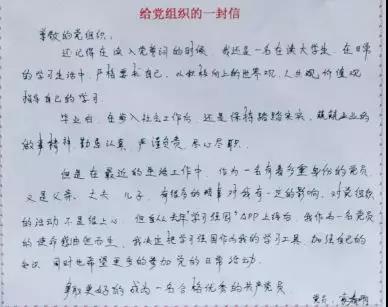 给党组织的一封信
尊敬的党组织:
还记得在读入党誓词的时候,我还是一名在读大学生,在日常
的学习生活中,严格要求自己,以积极向上的世界观,人生观,价值观
指导自己的学习.
毕业后,在步入社会工作后,还是保持踏踏实实,兢兢业业的
做事精神,勤恳认真,严谨负责,尽心尽职.
但是在最近的生活工作中,作为一名有着多重身份的党员
又是父亲、丈夫、儿子,有很多的琐事对我有一定的影响,对党组织
的活动不是很上心,但自从去年"学习强国"APP上线后,我作为一名党员
的使命感由然而生,我决定把学习强国作为我的学习工具,加强自己的
知识,同时也希望更多的参加党的日常活动.
争取更好的成为一名合格优秀的共产党员
党员: